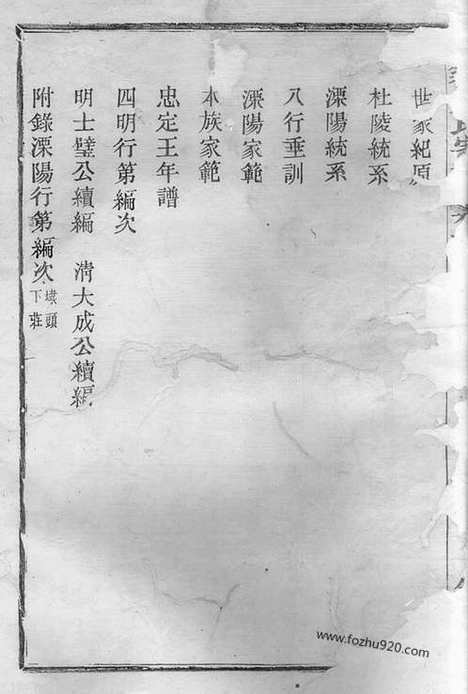 世家紀原
杜陵統系
溧陽統系
八行垂訓
溧陽家範
本族家範
忠定王年譜
四明行第編次
明士璧公續編 清大成公續編
附錄溧陽行第編次 埭頭 下莊
www.fozhu920.com